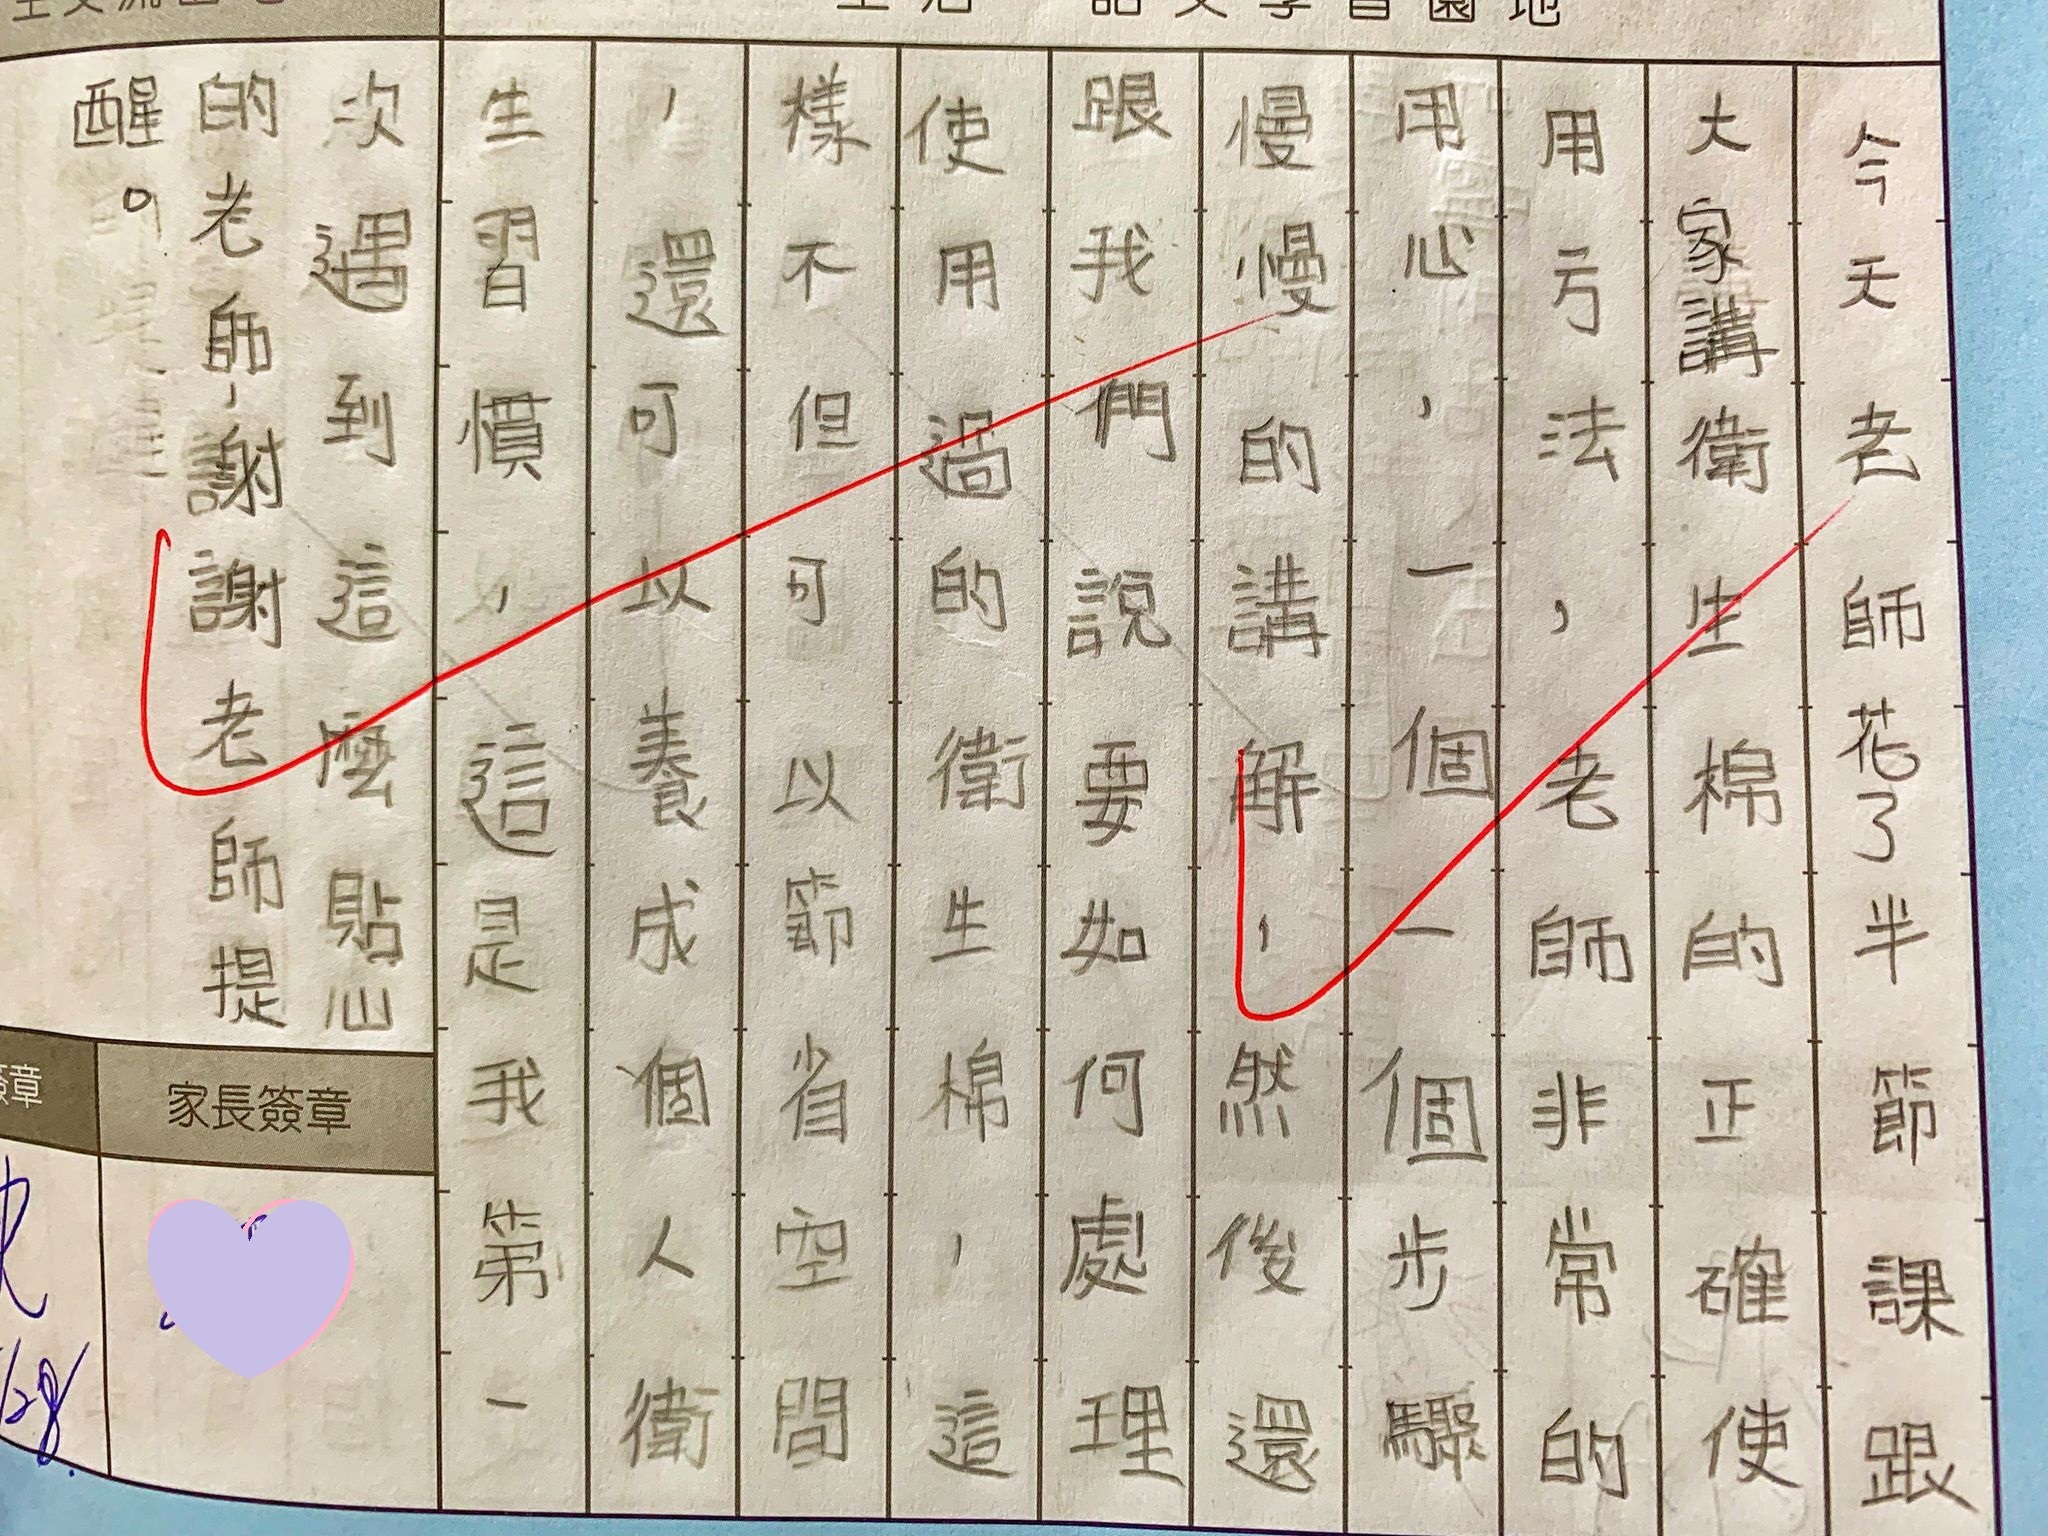 語文學習園地
今天老師花了半節課跟
大家講衛生棉的正確使
用方法，老師非常的
用心，一個一個步驟
慢慢的講解，然後還
跟我們說要如何處理
使用過的衛生棉，這
樣不但可以節省空間
，還可以養成個人衛
生習慣，這是我第一
次遇到這麼貼心
的老師，謝謝老師提
醒。
家長簽章
簽章